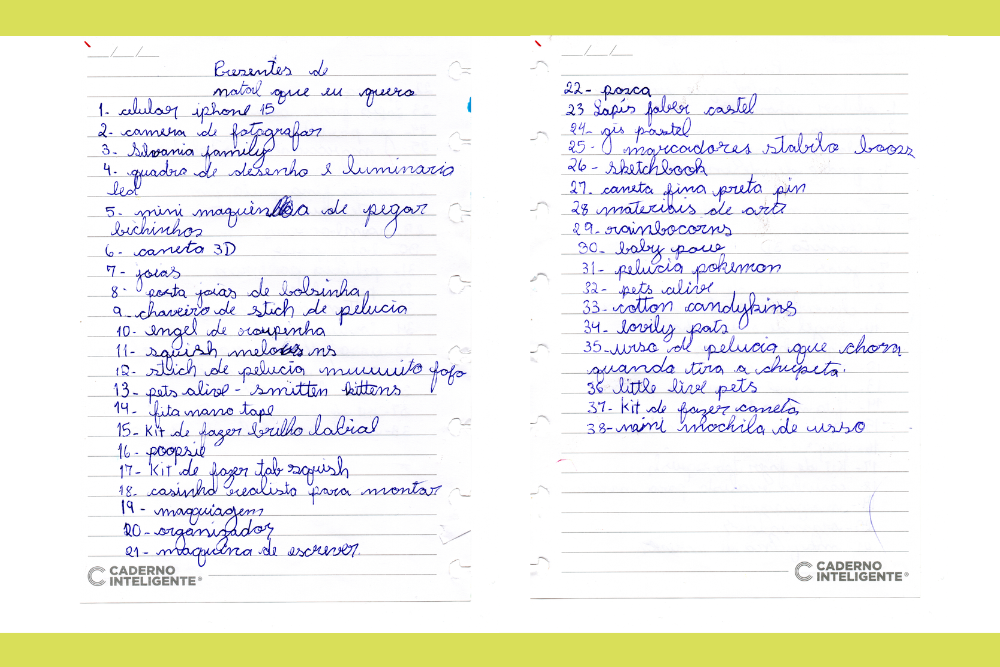 Presentes de
natal que eu quero
1- celular iphone 15
2- camera de fotografar
3- Silvania family
4- quadro de desenho e luminario
led
5- mini maquininha de pegar
bichinhos
6- caneta 3D
7- joias
8- porta joias de bolsinha
9- chaveiro de stich de pelucia
10- engel de roupinha
11- squish ns
12- stich de pelucia muuuuito fofo
13- pets alive - smitten kittens
14- fita nano tape
15- Kit de fazer brilho labial
16- poopsie
17- Kit de fazer tab squish
18- casinha realista para montar
19- maquiagem
20- organizador
21- maquina de escrever
CADERNO
INTELIGENTE®
22- posca
23 Lapis faber castel
24- gis pastel
25- marcadores stabilo
26- sketchbook
27- caneta fina preta pin
28 materiais de arte
29- rainbocorns
30- baby paw
31- pelucia pokemon
32- pets alive
33- cotton candykins
34- lovily pats
35- urso de pelucia que chora
quando tira a chupeta.
36 little live pets
37- Kit de fazer caneta
38- mini mochila de usso
CADERNO
INTELIGENTE®